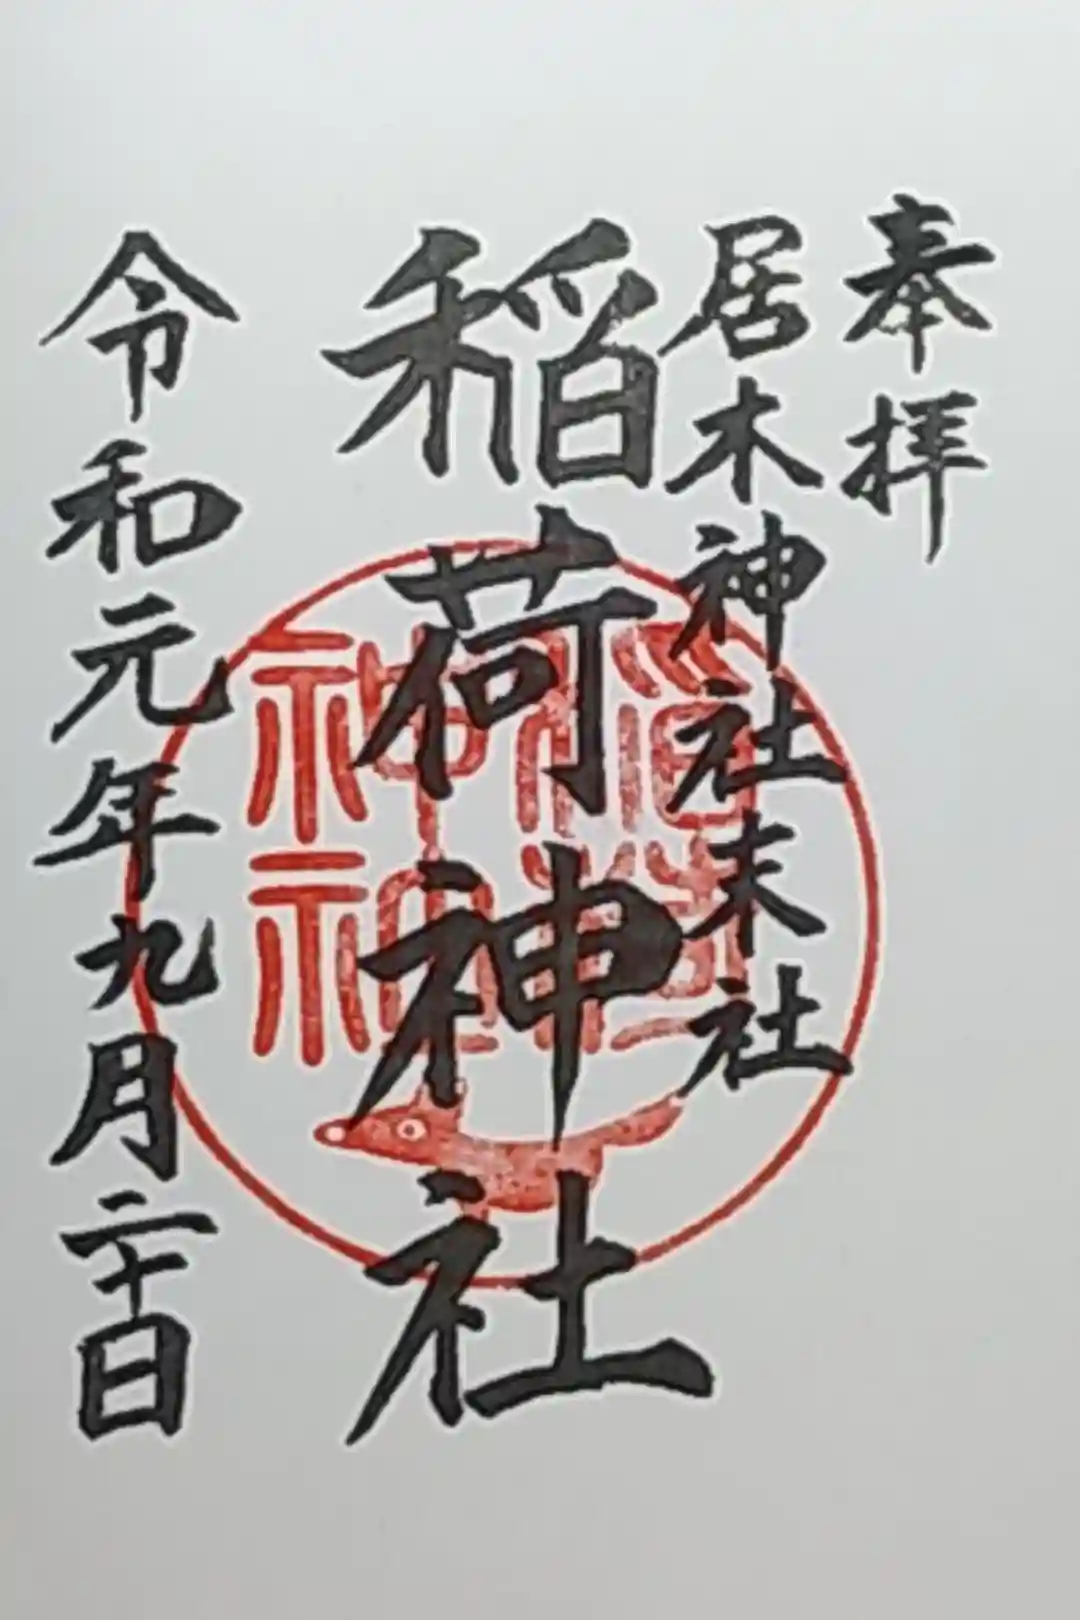 奉拝
居木神社末社
稲荷神社
令和元年九月二十日